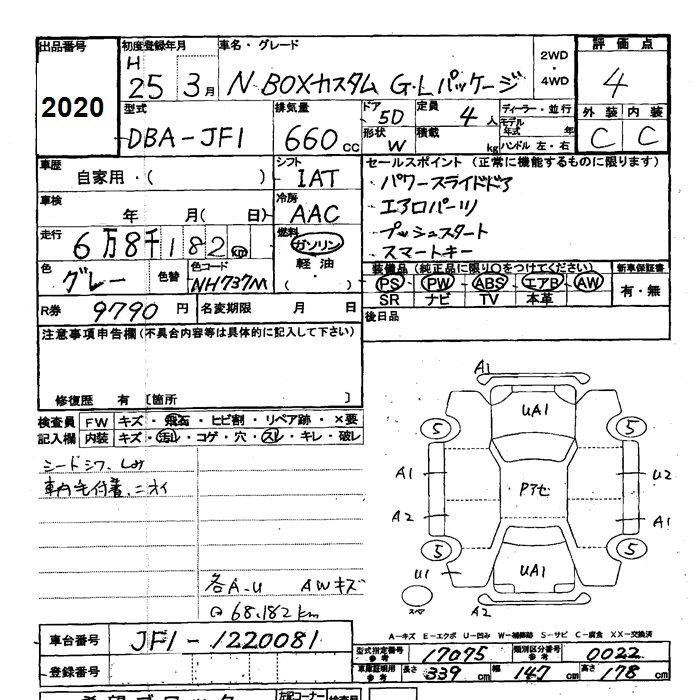 出品番号 初度登録年月 車名・グレード 2WD・4WD 評価点
2020 H 25 3月 N-BOXカスタム G・Lパッケージ 4
型式 排気量 ドア 5D 定員 4人 ディーラー・並行 外装 内装
DBA-JF1 660cc 形状 W 積載 kg モデル年式 年 C C
ハンドル 左・右
車歴 シフト セールスポイント (正常に機能するものに限ります)
自家用・( ) IAT パワースライドドア
車検 冷房 エアロパーツ
年 月( 日) AAC プッシュスタート
走行 燃料 スマートキー
6万8千182km ガソリン
軽油
( )
色 グレー 色替 色コード NH737M
装備品 (純正品に限り○をつけてください) 新車保証書
PS PW ABS エアB AW 有・無
SR ナビ TV 本革
R券 9790円 名変期限 月 日 後日品
注意事項申告欄(不具合内容等は具体的に記入して下さい)
修復歴 有 [箇所 ]
検査員 FW キズ・飛石・ヒビ割・リペア跡・×要
記入欄 内装 キズ・汚れ・コゲ・穴・スレ・キレ・破レ
シートシワ、しみ
車内毛付着、ニオイ
各A-U AWキズ
68.182km
A1
UA1
5 5
A1 U2
Pアセ
A2 A1
5 5
U1 UA1
スマ A2
A-キズ E-エクボ U-凹み W-補修跡 S-サビ C-腐食 XX-交換済
車台番号 JF1-1220081
型式指定番号 参考 17075 類別区分番号 参考 0022
登録番号 車庫証明用 参考 長さ 339cm 幅 147cm 高さ 178cm